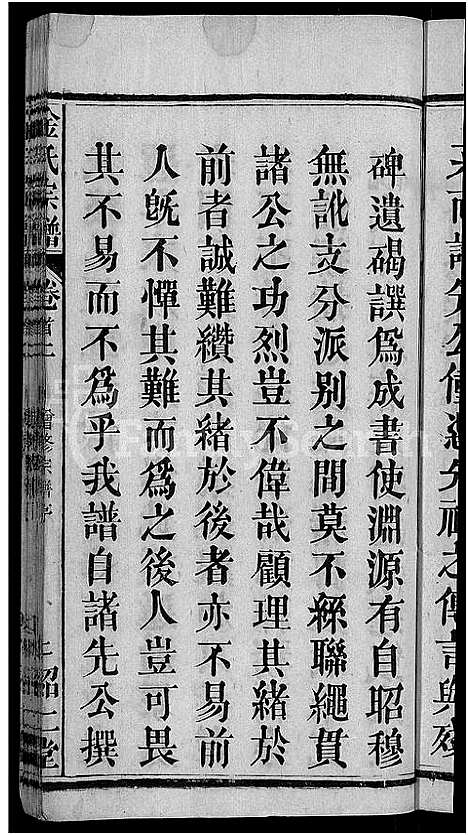 碑遺碣譔爲成書使淵源有自昭穆
無訛支分派别之間莫不縧聯繩貫
諸公之功烈豈不偉哉顧理其緒於
前者誠難纘其緒於後者亦不易前
人旣不憚其難而爲之後人豈可畏
其不易而不爲乎我譜自諸先公撰
金氏宗譜
卷首上